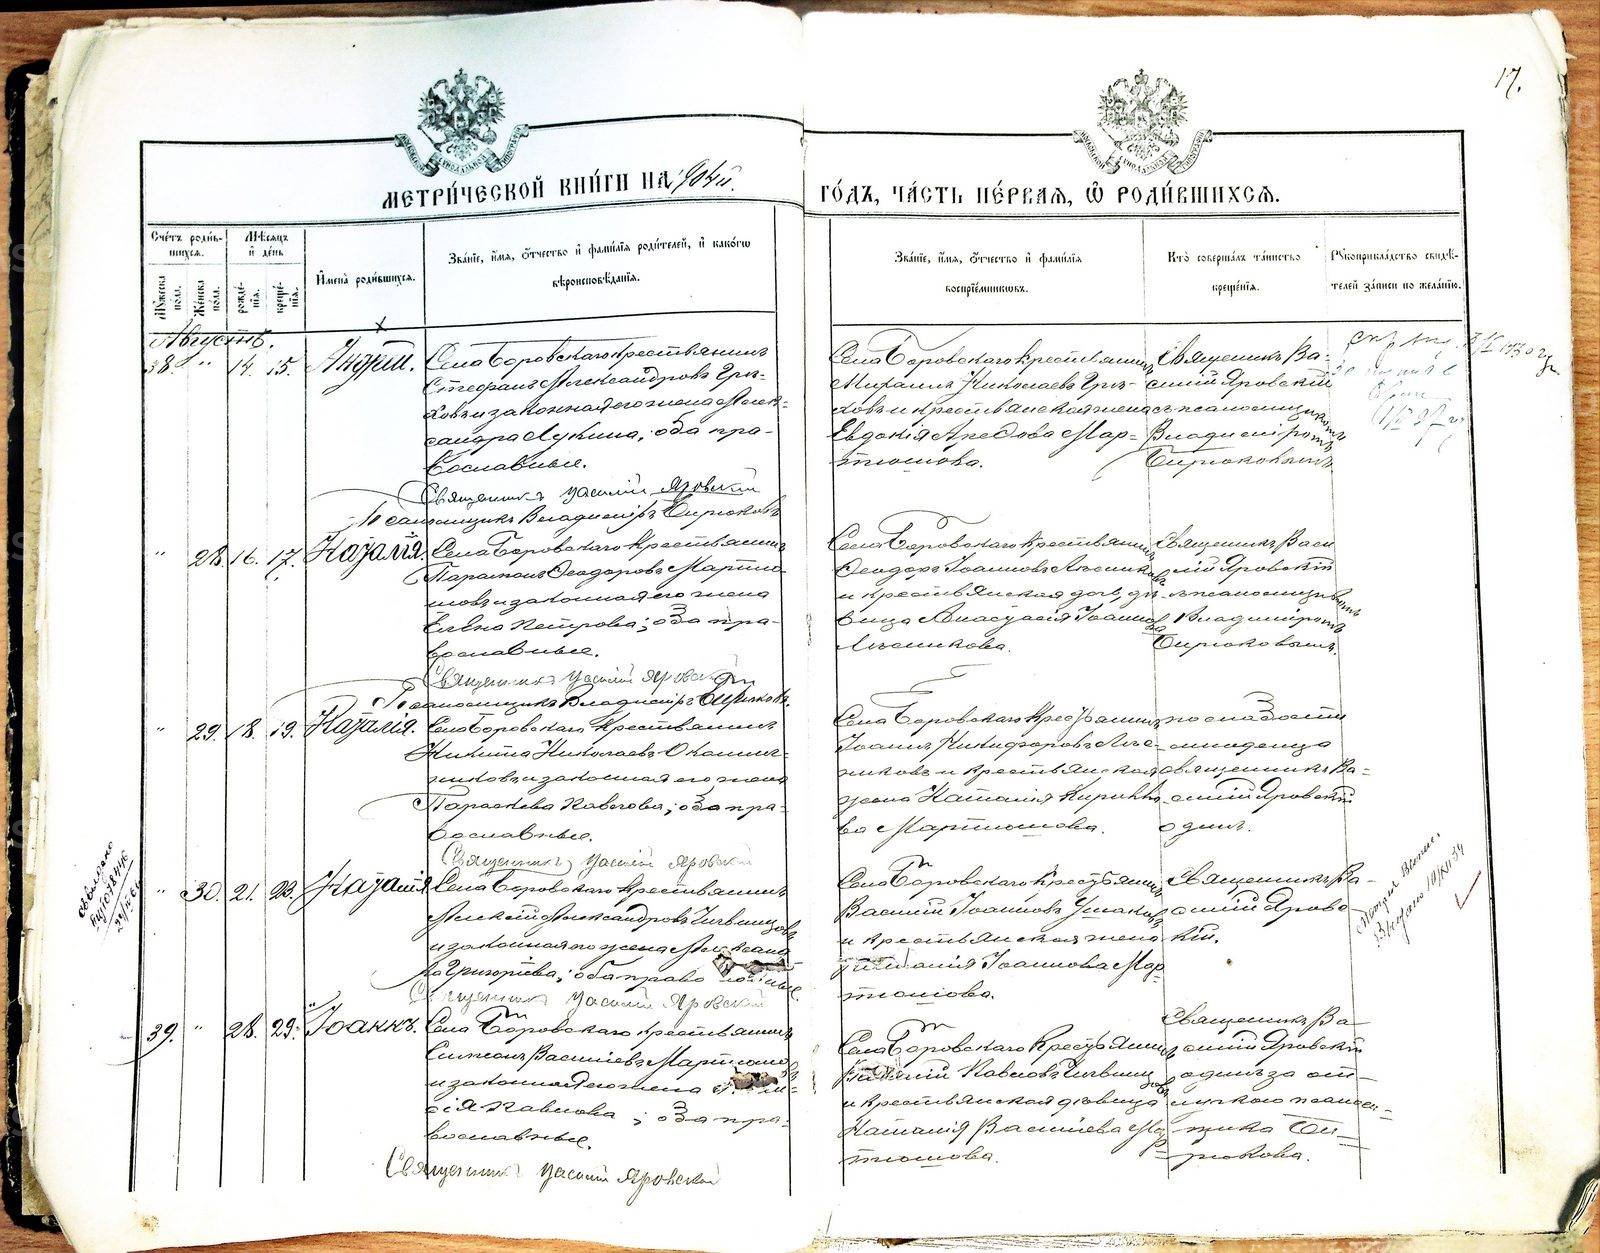 17.
МЕТРИ́ЧЕСКОЙ КНИ́ГИ НА 1904й. ГО́ДЪ, ЧА́СТЬ ПЕ́РВАЯ, Ѡ РОДИ́ВШИХСЯ.
Сче́тъ роди́вшихся.
Мѣ́сяцъ и҆ де́нь
Му́жеска по́ла.
Же́нска по́ла.
рожде́нїя.
креще́нїя.
И҆мена̀ роди́вшихся.
Зва́нїе, и҆́мя, ѻ҆́тчество и҆ фами́лїя роди́телей, и҆ како́гѡ
вѣроисповѣ́данїя.
Зва́нїе, и҆́мя, ѻ҆́тчество и҆ фами́лїя
воспрїе́мникѡвъ.
Кто̀ соверша́лъ та́инство
креще́нїя.
Рꙋкоприкла́дство свидѣ́-
телей за́писи по жела́нїю.
Августъ.
38. " 14. 15. Андрей.
Села Боровскаго крестьянинъ
Стефанъ Александровъ Гры-
ховъ и законная его жена Алек-
сандра Лукина, оба пра-
вославные.
Священникъ Василій Яровскій
Псаломщикъ Владиміръ Бирюковъ
Села Боровскаго крестьянинъ
Михаилъ Николаевъ Гры-
ховъ и крестьянская жена
Евдокія Арефова Мар-
тюшова.
Священникъ Ва-
силій Яровскій
съ псаломщикомъ
Владиміромъ
Бирюковымъ.
" 28. 16. 17. Наталія.
Села Боровскаго крестьянинъ
Парамонъ Ѳеодоровъ Мартю-
шовъ и законная его жена
Елена Петрова; оба пра-
вославные.
Священникъ Василій Яровскій
Псаломщикъ Владиміръ Бирюковъ.
Села Боровскаго крестьянинъ
Ѳеодоръ Іоанновъ Лѣсниковъ
и крестьянская дочь, дѣ-
вица Анастасія Іоаннова
Лѣсникова.
Священникъ Васи-
лій Яровскій
съ псаломщикомъ
Владиміромъ
Бирюковымъ.
" 29. 18. 19. Наталія.
Села Боровскаго крестьянинъ
Никита Николаевъ
и законная его жена
Параскева Павлова; оба пра-
вославные.
Священникъ Василій Яровскій
Села Боровскаго крестьянинъ
Іоаннъ Никифоровъ Лѣс-
никовъ и крестьянская
жена Наталія
Мартюшова.
по слабости
младенца
священникъ Ва-
силій Яровскій
одинъ.
" 30. 21. 22. Наталія
Села Боровскаго крестьянинъ
Алексій Александровъ
и законная его жена Александ-
ра Григоріева; оба православные.
Священникъ Василій Яровскій
Села Боровскаго крестьянинъ
Василій Іоанновъ Ушаковъ
и крестьянская жена
Іоаннова Мар-
тюшова.
Священникъ Ва-
силій Яровс-
кій.
39. " 28. 29. Іоаннъ.
Села Боровскаго крестьянинъ
Симеонъ Василіевъ Мартюшовъ
и законная его жена
Павлова; оба пра-
вославные.
Священникъ Василій Яровскій
Села Боровскаго крестьянинъ
Павловъ
и крестьянская дѣвица
Наталія Василіева Мар-
тюшова.
Священникъ Ва-
силій Яровскій
одинъ за от-
лучкою псалом-
щика Би-
рюкова.